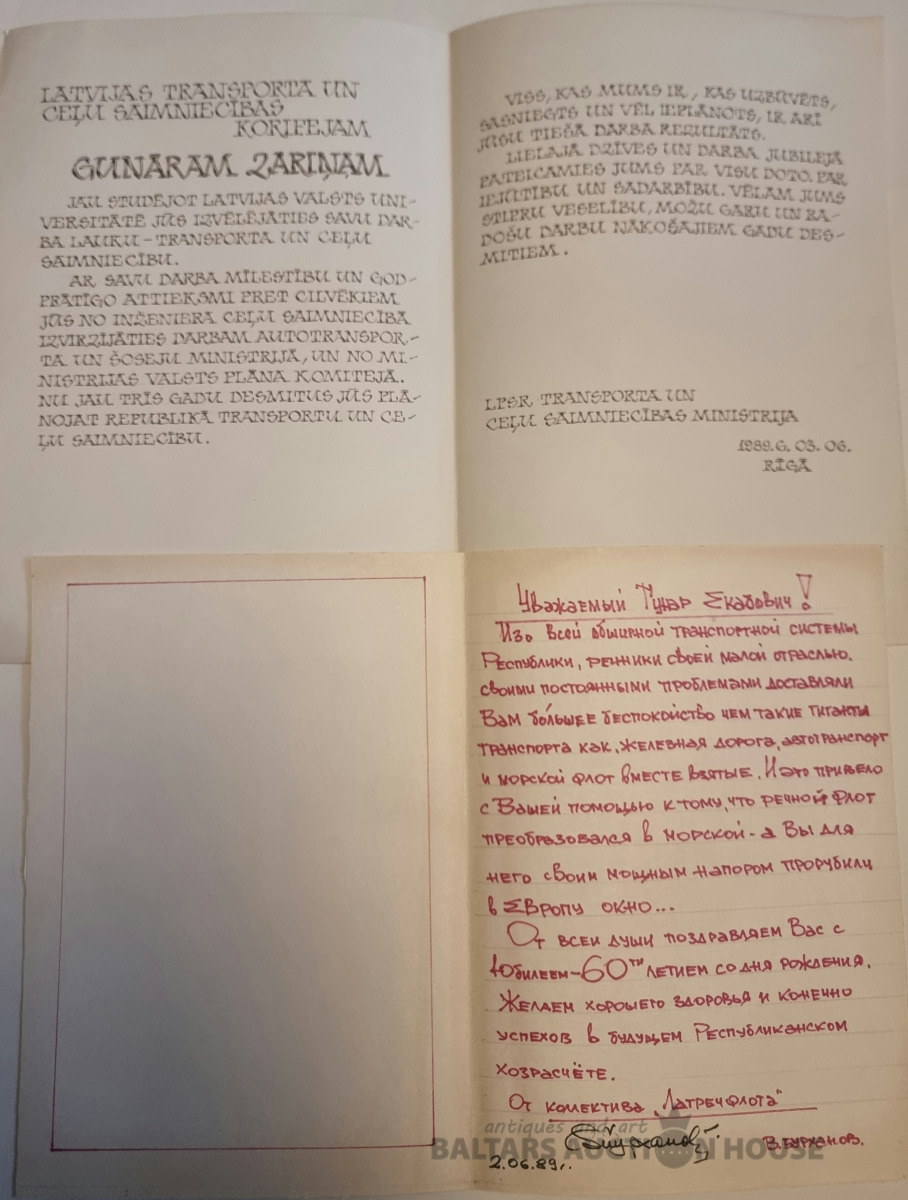 LATVIJAS TRANSPORTA UN
CEĻU SAIMNIECĪBAS
KORIFEJAM
GUNĀRAM ZARIŅAM
JAU STUDĒJOT LATVIJAS VALSTS UNI-
VERSITĀTĒ JŪS IZVĒLĒJĀTIES SAVU DAR-
BA LAUKU – TRANSPORTA UN CEĻU
SAIMNIECĪBU.
AR SAVU DARBA MĪLESTĪBU UN GOD-
PRĀTĪGO ATTIEKSMI PRET CILVĒKIEM
JŪS NO INŽENIERA CEĻU SAIMNIECĪBĀ
IZVIRZĪJĀTIES DARBAM AUTOTRANSPOR-
TA UN ŠOSEJU MINISTRIJĀ, UN NO MI-
NISTRIJAS VALSTS PLĀNA KOMITEJĀ.
NU JAU TRĪS GADU DESMITUS JŪS PLĀ-
NOJAT REPUBLIKĀ TRANSPORTU UN CE-
ĻU SAIMNIECĪBU.
VISS, KAS MUMS IR, KAS UZBŪVĒTS,
SASNIEGTS UN VĒL IEPLĀNOTS, IR ARĪ
JŪSU TIEŠA DARBA REZULTĀTS.
LIELAJĀ DZĪVES UN DARBA JUBILEJĀ
PATEICAMIES JUMS PAR VISU DOTO, PAR
IEJŪTĪBU UN SADARBĪBU. VĒLAM JUMS
STIPRU VESELĪBU, MOŽU GARU UN RA-
DOŠU DARBU NĀKOŠAJIEM GADU DES-
MITIEM.
LPSR TRANSPORTA UN
CEĻU SAIMNIECĪBAS MINISTRIJA
1989.G. 03. 06.
RĪGĀ
Уважаемый Гунар Екабович!
Изо всей обширной транспортной системы
Республики, речники своей малой отраслью,
своими постоянными проблемами доставляли
Вам бо́льшее беспокойство чем такие гиганты
транспорта как, железная дорога, автотранспорт
и морской флот вместе взятые. И это привело
с Вашей помощью к тому, что речной флот
преобразовался в морской - а Вы для
него своим мощным напором прорубили
в Европу окно...
От всей души поздравляем Вас с
Юбилеем - 60ти летием со дня рождения.
Желаем хорошего здоровья и конечно
успехов в будущем Республиканском
хозрасчёте.
От колектива „Латречфлота"
В. Бурханов.
2.06.89г.
antiques and art
BALTARS AUCTION HOUSE